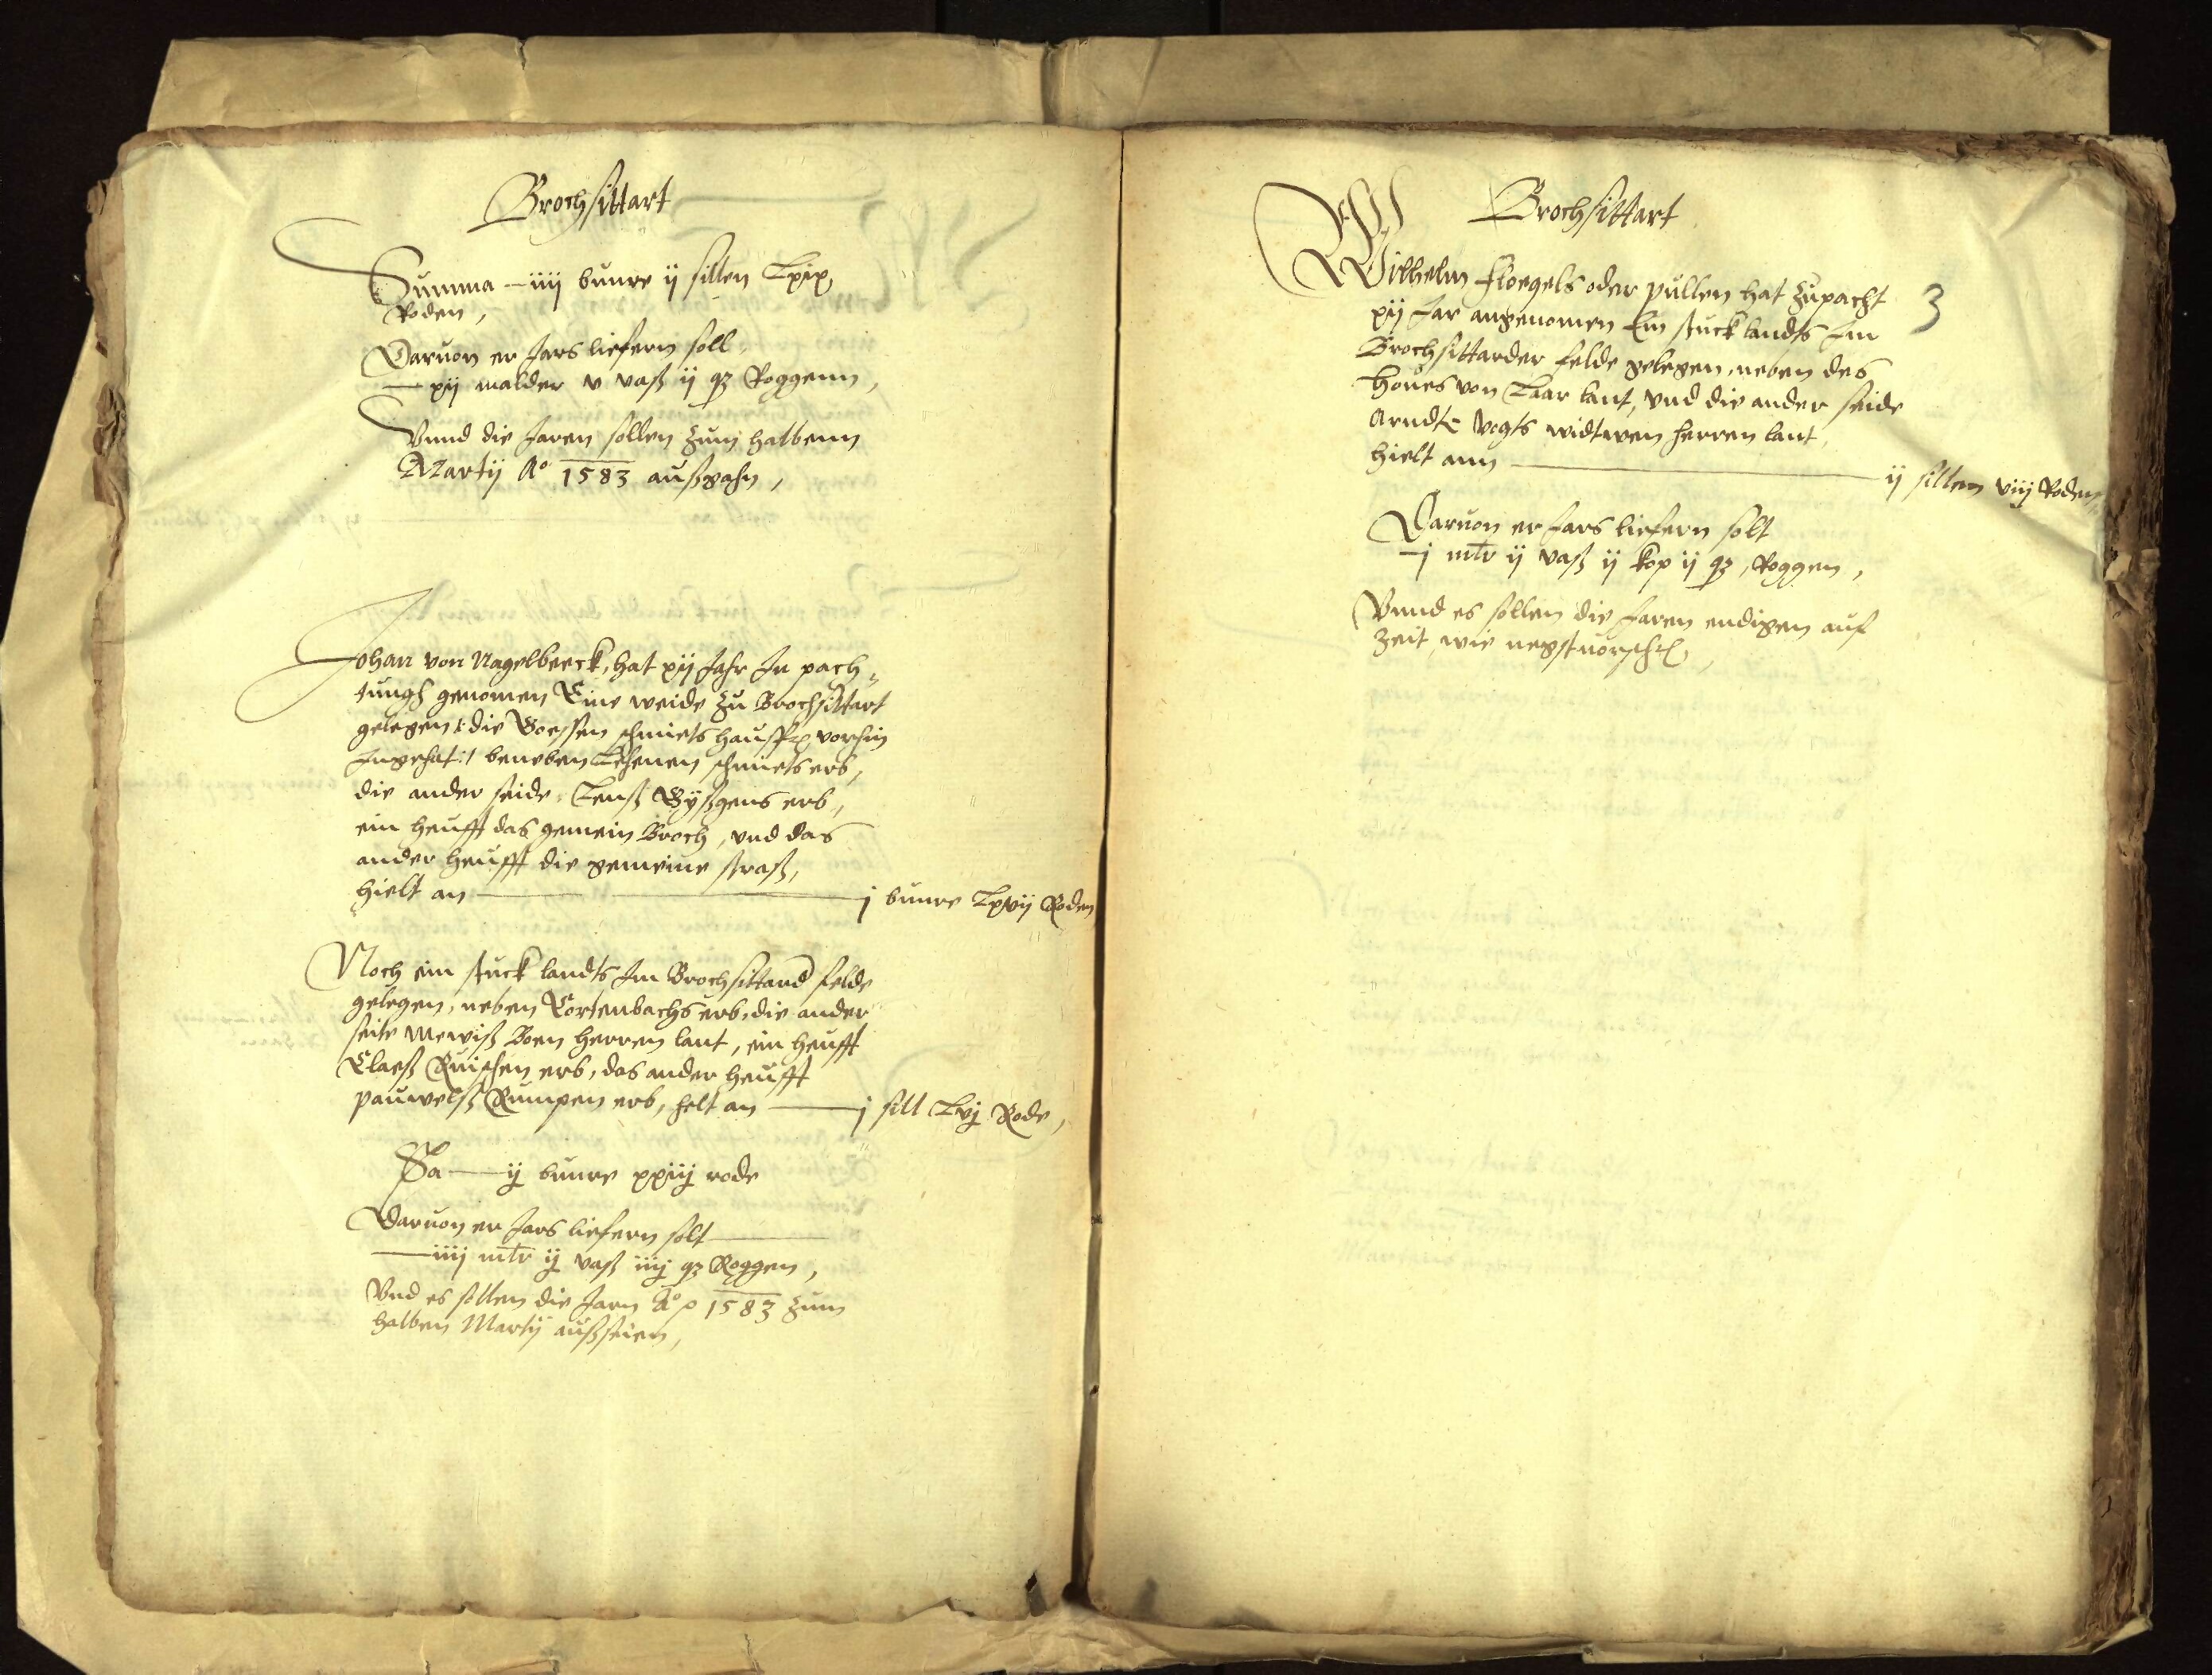 Brochsittart
Summa — iiij bunre ij sillen Lxix
Roden,
Daruon er Jars liefern soll
— xij malder v vaß ij qz Roggenn,
Vnnd die Jaren sollen zum halbenn
Martij Ao 1583 außgahn,
Johan von Nagelbeeck, hat xij Jahr In pach„
tungh genomen Eine weide zu Brochsittart
gelegen /: die Goessen schmiets hauss vorhin
Ingehat :/ beneben schmiets erb,
die ander seide, Lenß Gyßgens erb,
ein heufft das gemein Broch, vnd das
ander heufft die gemeine straß,
hielt an — j bunre Lxvij Roden
Noch ein stuck landts Im Brochsittard felde
gelegen, neben Cortenbachs erb, die ander
seite Mewiß Boen herren lant, ein heufft
Claeß Ruischen erb, das ander heufft
pauwelß Rumpen erb, helt an — j sill Lvj Rode,
Sa — ij bunre xxiij rode
Daruon er Jars liefern solt —
— iiij mlr ij vaß iij qz Roggen,
Vnd es sollen die Jarn Ao 1583 zum
halben Martij außseien,
Brochsittart
3
Wilhelm Floegels oder pullen hat zupacht
xij Jar angenomen Ein stuck landts Im
Brochsittarder felde gelegen, neben des
houes von Laar lant, vnd die ander seide
Arndt Vogts widtwen herren lant,
hielt ann — ij sillen viij Roden,
Daruon er Jars liefern solt
— j mlr ij vaß ij kop ij qz, Roggen,
Vnnd es sollen die Jaren endigen auf
Zeit, wie negstuorschr,